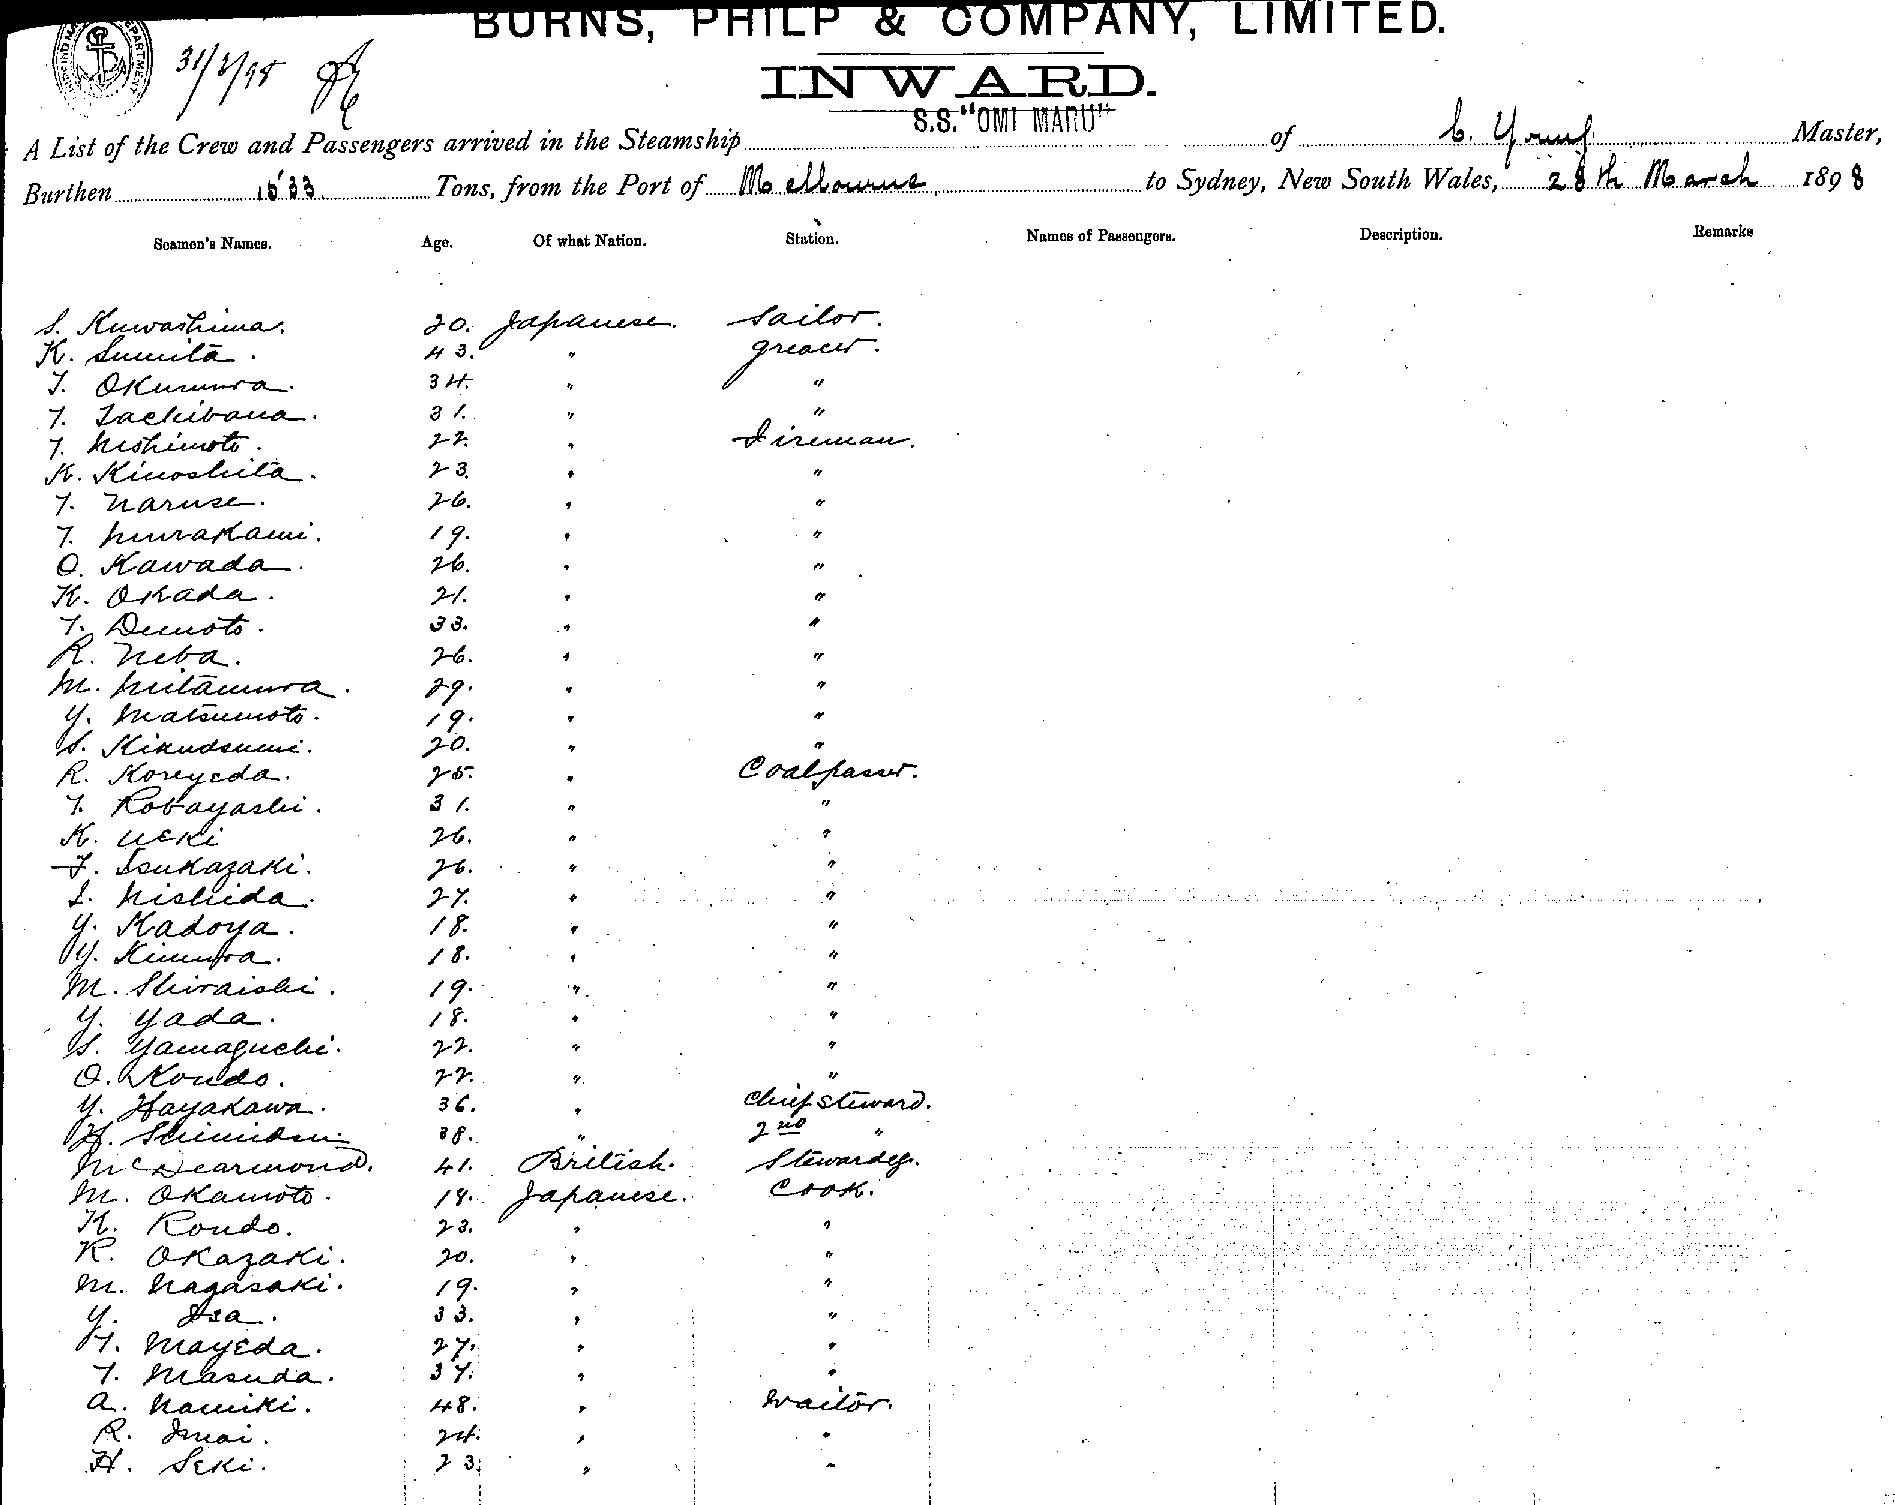 BURNS, PHILP & COMPANY, LIMITED.
31/3/98
INWARD.
S.S. "OMI MARU"
A List of the Crew and Passengers arrived in the Steamship of C. Young Master,
Burthen 1533 Tons, from the Port of Melbourne to Sydney, New South Wales, 28th March 1898
Seamen's Names. Age. Of what Nation. Station. Names of Passengers. Description. Remarks
S. Kuwashima. 20. Japanese. Sailor.
K. Sumita. 43. " greaser.
T. Okumura. 34. " "
T. Tachibana. 31. " "
T. Nishimoto. 22. " Fireman.
K. Kinoshita. 23. " "
T. Naruse. 26. " "
T. Murakami. 19. " "
O. Kawada. 26. " "
K. Okada. 21. " "
T. Demoto. 33. " "
R. Neba. 26. " "
M. Mitamura. 29. " "
Y. Matsumoto. 19. " "
S. Kikudsumi. 20. " "
R. Koreyeda. 25. " Coalpasser.
T. Kobayashi. 31. " "
K. Ueki 26. " "
T. Tsukazaki. 26. " "
I. Nishida. 27. " "
Y. Kadoya. 18. " "
Y. Kimura. 18. " "
M. Shiraishi. 19. " "
Y. Yada. 18. " "
S. Yamaguchi. 22. " "
O. Kondo. 22. " "
Y. Hayakawa. 36. " Chief steward.
H. Shimidsu 38. " 2nd "
McDearmond. 41. British. Stewardess.
M. Okamoto. 19. Japanese. Cook.
K. Kondo. 23. " "
K. Okazaki. 20. " "
M. Nagasaki. 19. " "
Y. Isa. 33. " "
T. Mayeda. 27. " "
T. Masuda. 37. " "
A. Namiki. 48. " Waitor.
R. Imai. 24. " "
H. Seki. 23. " "